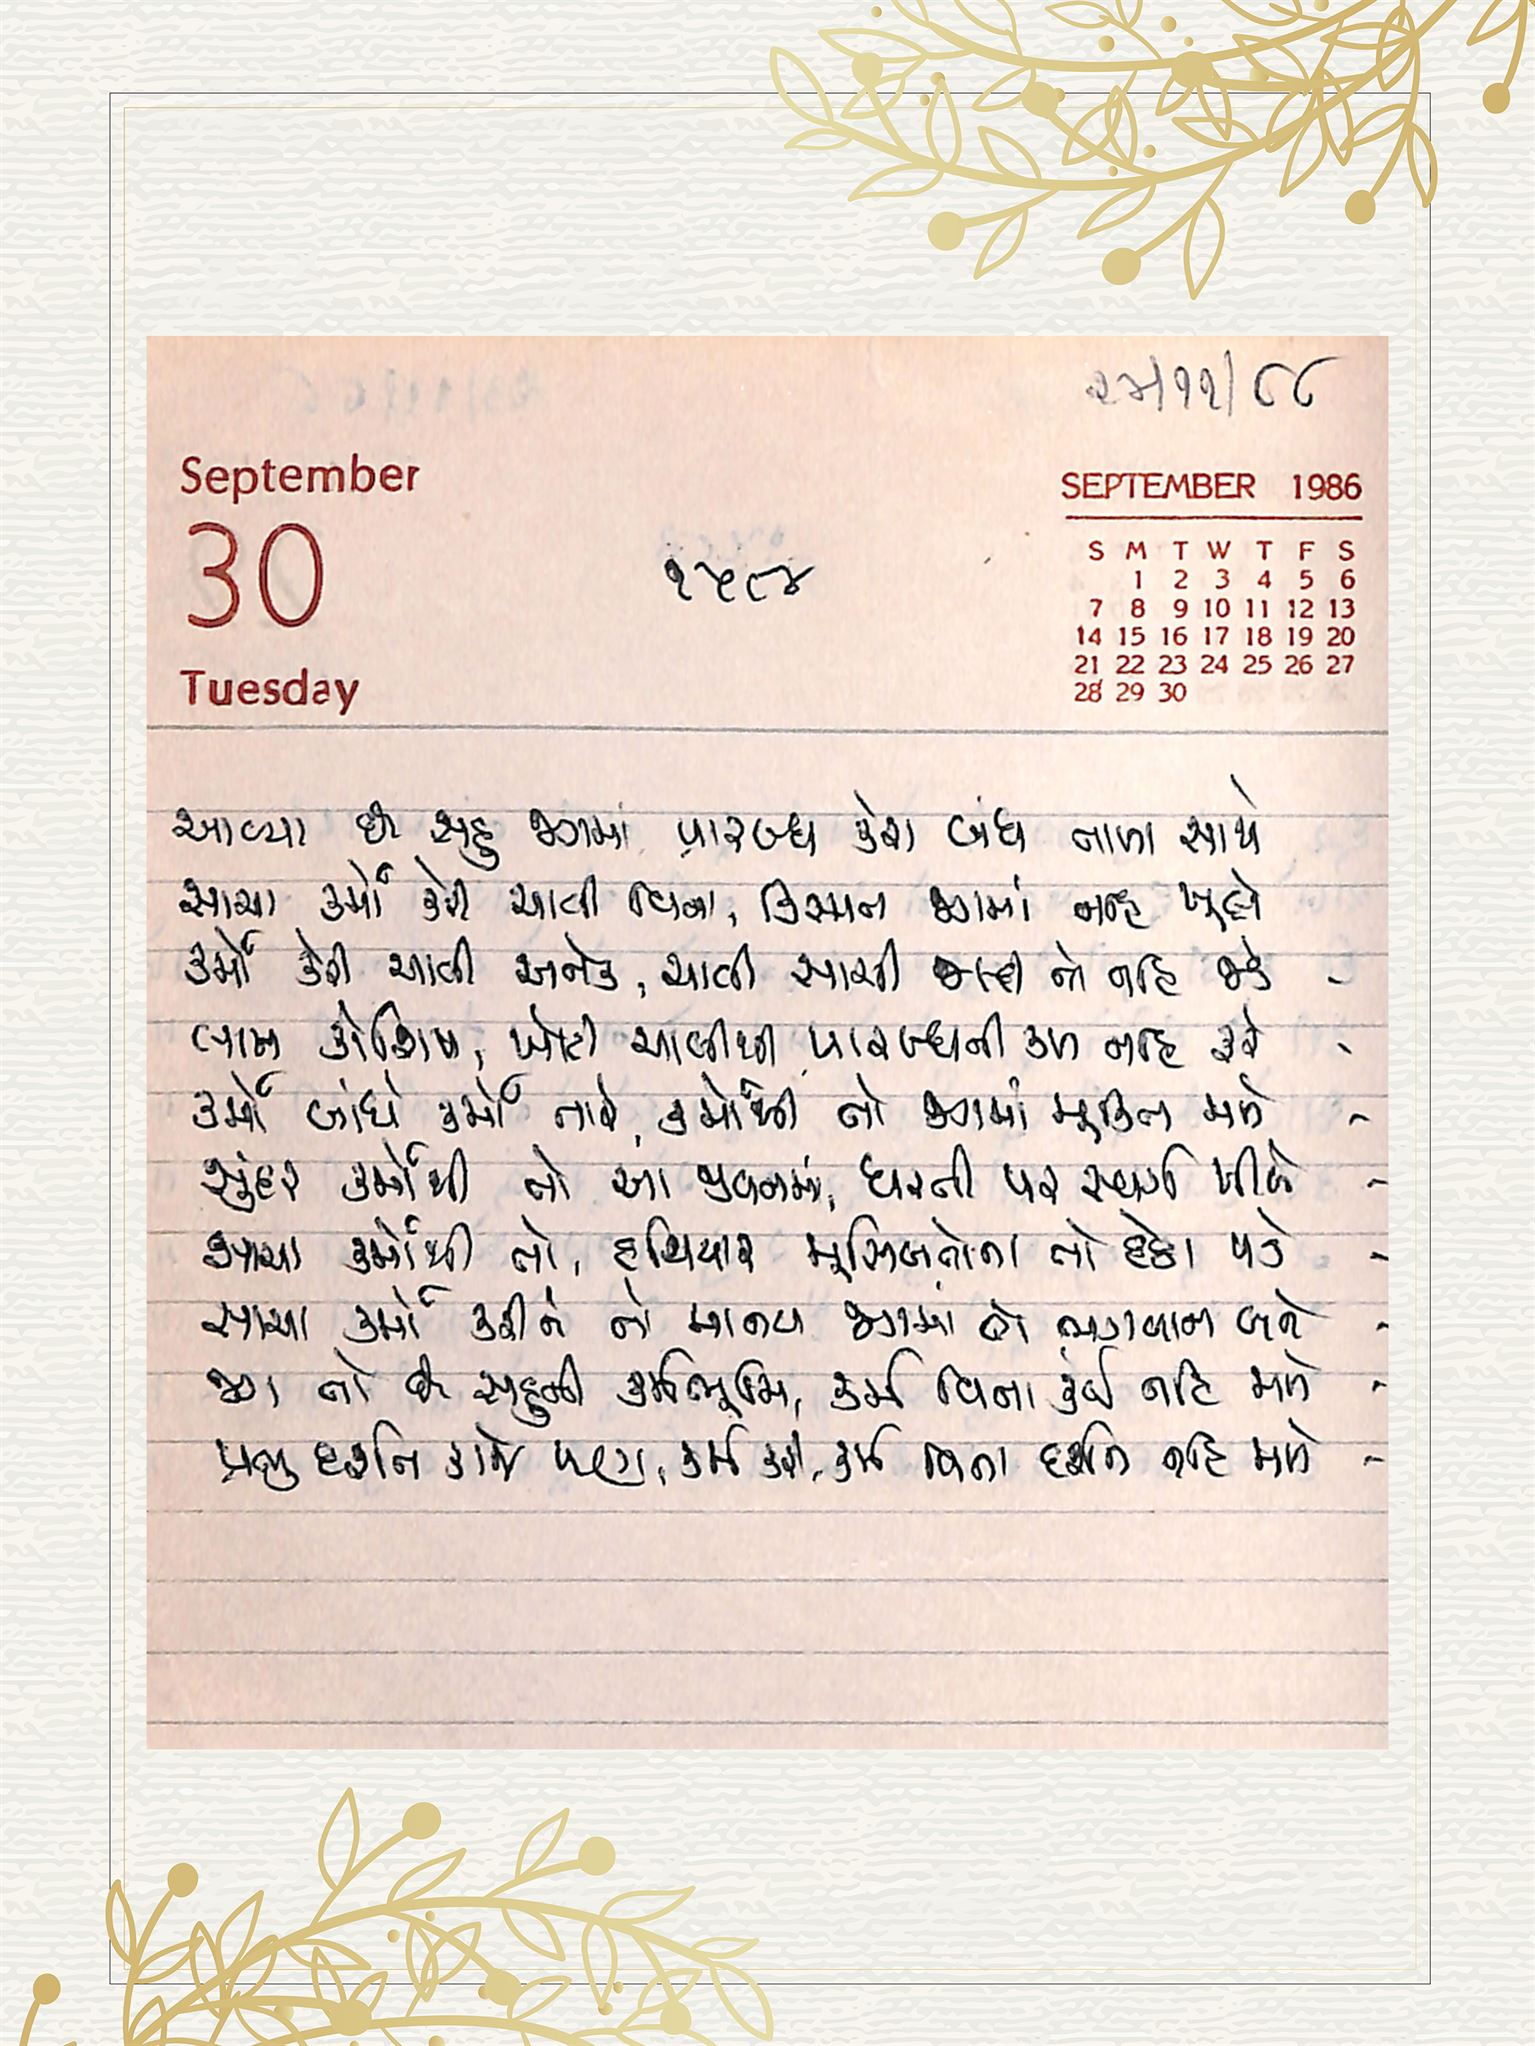 ૨૭/૧૧/૮૮
September
30
Tuesday
૧૫૮૪
SEPTEMBER 1986
S M T W T F S
1 2 3 4 5 6
7 8 9 10 11 12 13
14 15 16 17 18 19 20
21 22 23 24 25 26 27
28 29 30
આવ્યા છે સહુ જગમાં પ્રારબ્ધ કેરા બંધ તાળા સાથે
સાચા કર્મો કેરી ચાવી વિના, કિસ્મત જગમાં નહિ ખૂલે
કર્મો કેરી ચાવી અનેક, ચાવી સાચી જલ્દી તો નહિ જડે -
લાખ કોશિષે, ખોટી ચાવીથી પ્રારબ્ધની કળ નહિ ફરે -
કર્મો બાંધે કર્મો તારે, કર્મોથી તો જગમાં મૂક્તિ મળે -
સુંદર કર્મોથી તો આ જીવનમાં, ધરતી પર સ્વર્ગ ખીલે -
સાચા કર્મોથી તો, હથિયાર મૂસીબતોના તો હેઠા પડે -
સાચા કર્મો કરીને તો માનવ જગમાં તો ભગવાન બને -
જગ તો છે સહુની કર્મભૂમિ, કર્મ વિના કંઈ નહિ મળે -
પ્રભુ દર્શન કાજે પણ, કર્મ કરો, કર્મ વિના દર્શન નહિ મળે -